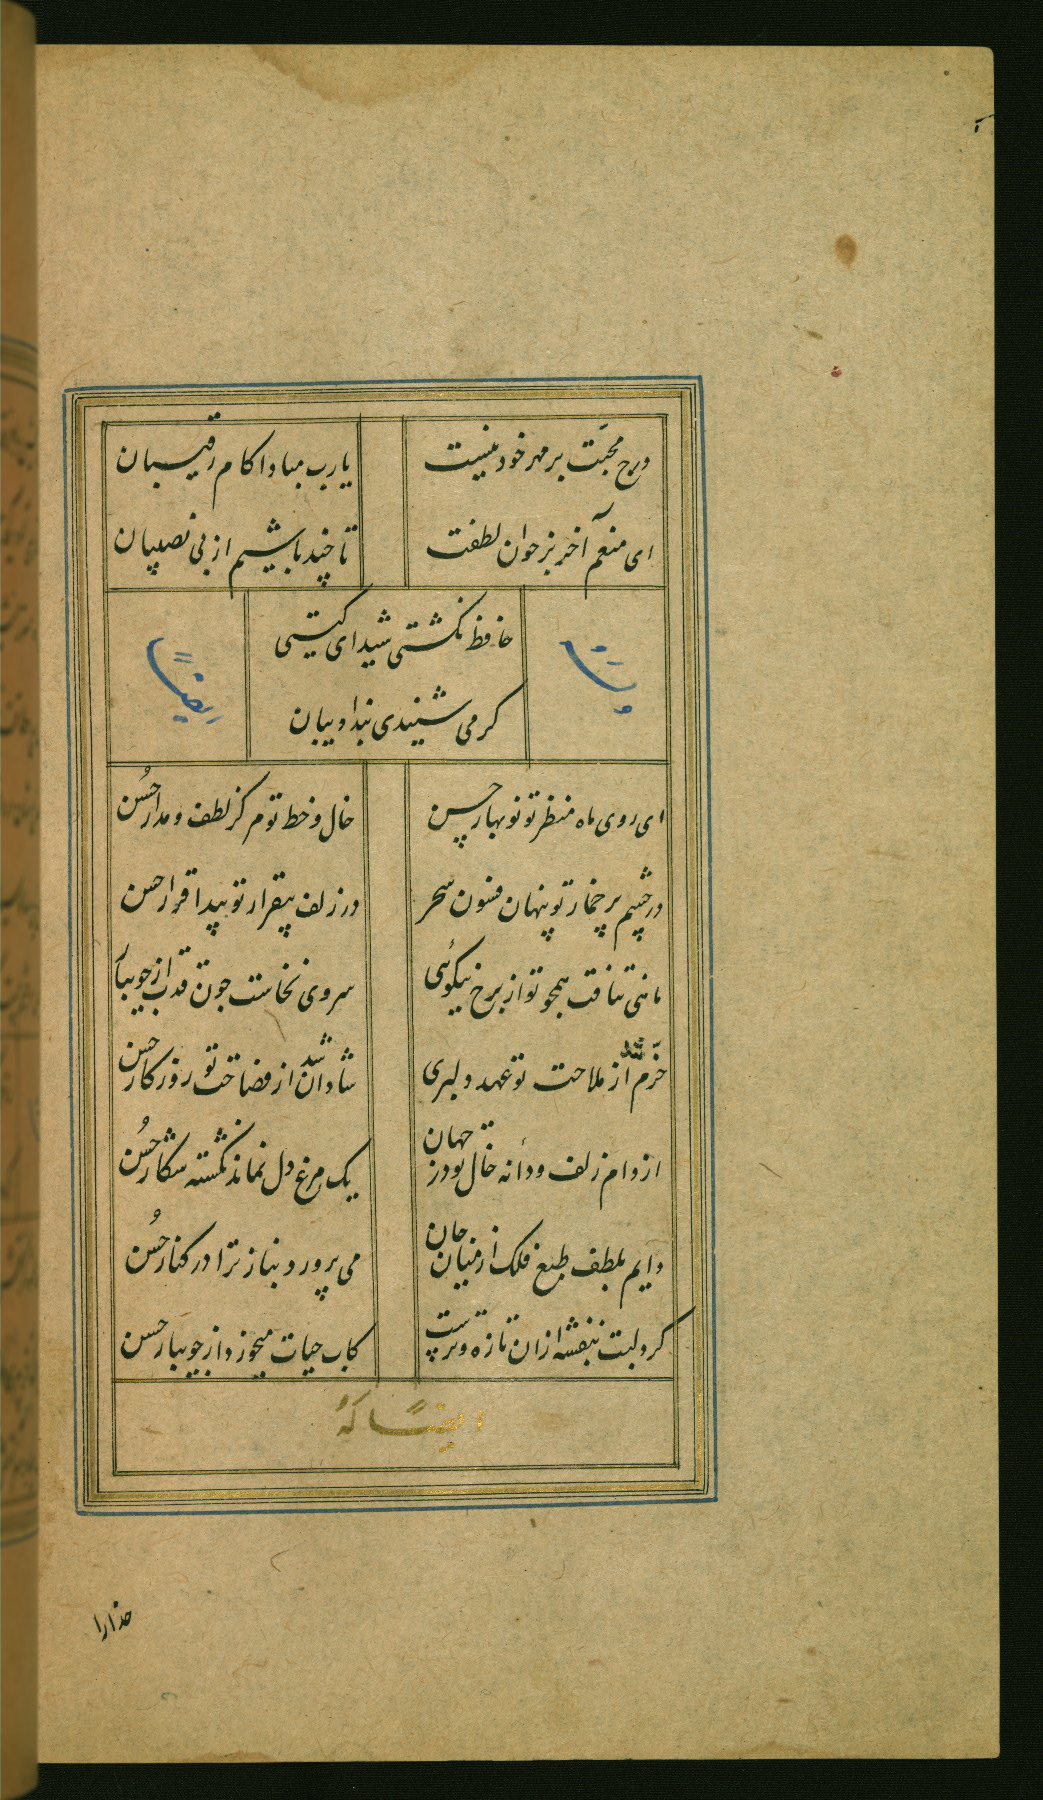 درج محبت بر مهر خود نیست
یارب مبادا کام رقیبان
ای منعم آخر بر خوان لطفت
تا چند باشیم از بی نصیبان
حافظ نکشتی شیدای کیتی
کر می شنیدی پند ادیبان
ایضاً
ای روی ماه منظر تو نوبهار حسن
خال و خط تو مرکز لطف و مدار حسن
در چشم پر خمار تو پنهان فسون سحر
در زلف بیقرار تو پیدا قرار حسن
ماهی نتافت همچو تو از برج نیکوئی
سروی نخاست چون قدت از جویبار
خرم شد از ملاحت تو عهد دلبری
شادان شد از فصاحت تو روزکار حسن
از دام زلف و دانه خال تو در جهان
یک مرغ دل نماند نکشته شکار حسن
دایم بلطف طبع فلک از میان جان
می پرورد بناز ترا در کنار حسن
کرد لبت بنفشه ازان تازه و ترست
کاب حیات میخورد از جویبار حسن
ایضاً له
خدارا